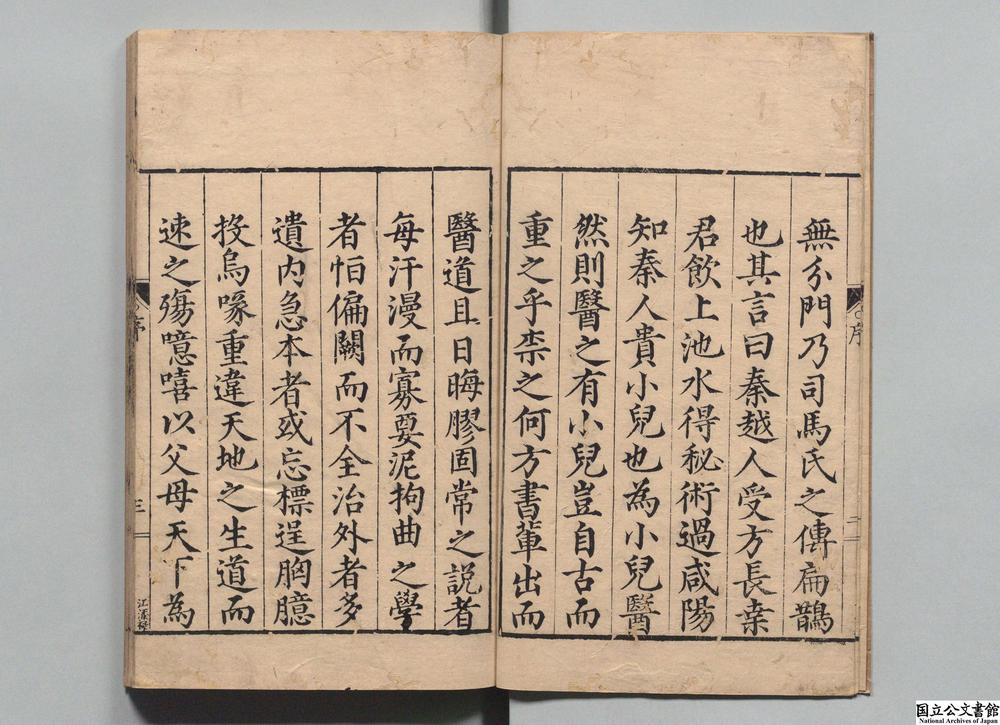 無分門乃司馬氏之傳扁鵲
也其言曰秦越人受方長桒
君飲上池水得秘術過咸陽
知秦人貴小兒也為小兒醫
然則醫之有小兒豈自古而
重之乎柰之何方書輩出而
醫道且日晦膠固常之說者
每汗漫而寡要泥拘曲之學
者怕偏闕而不全治外者多
遺內急本者或忘標逞胸臆
投烏喙重違天地之生道而
速之殤噫嘻以父母天下為
序
二
序
三
国立公文書館
National Archives of Japan